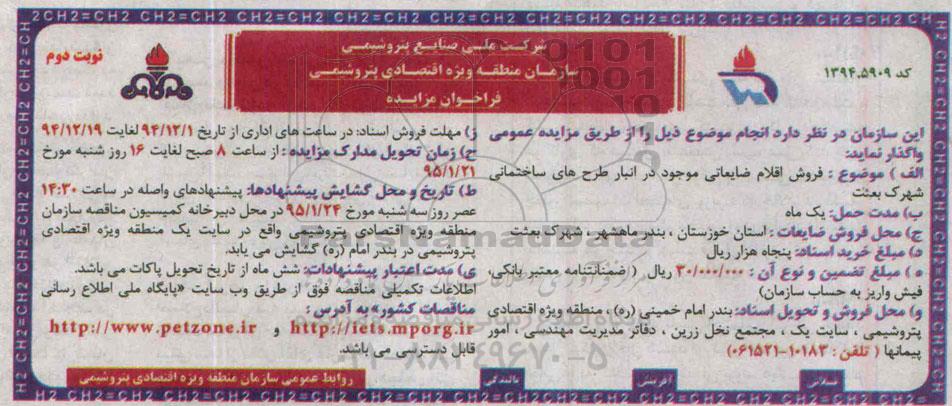 کد ۱۳۹۴.۵۹۰۹
شرکت ملی صنایع پتروشیمی
سازمان منطقه ویژه اقتصادی پتروشیمی
فراخوان مزایده
نوبت دوم
این سازمان در نظر دارد انجام موضوع ذیل را از طریق مزایده عمومی
واگذار نماید:
الف) موضوع : فروش اقلام ضایعاتی موجود در انبار طرح های ساختمانی
شهرک بعثت
ب) مدت حمل: یک ماه
ج) محل فروش ضایعات : استان خوزستان ، بندر ماهشهر ، شهرک بعثت
د) مبلغ خرید اسناد: پنجاه هزار ریال
ه) مبلغ تضمین و نوع آن : ۳۰/۰۰۰/۰۰۰ ریال ( ضمنانتنامه معتبر بانکی،
فیش واریز به حساب سازمان)
و) محل فروش و تحویل اسناد: بندر امام خمینی (ره) ، منطقه ویژه اقتصادی
پتروشیمی ، سایت یک ، مجتمع نخل زرین ، دفاتر مدیریت مهندسی ، امور
پیمانها ( تلفن : ۱۰۱۸۳-۰۶۱۵۲۱)
ز) مهلت فروش اسناد: در ساعت های اداری از تاریخ ۹۴/۱۲/۱ لغایت ۹۴/۱۲/۱۹
ح) زمان تحویل مدارک مزایده : از ساعت ۸ صبح لغایت ۱۶ روز شنبه مورخ
۹۵/۱/۲۱
ط) تاریخ و محل گشایش پیشنهادها: پیشنهادهای واصله در ساعت ۱۴:۳۰
عصر روز سه شنبه مورخ ۹۵/۱/۲۴ در محل دبیرخانه کمیسیون مناقصه سازمان
منطقه ویژه اقتصادی پتروشیمی واقع در سایت یک منطقه ویژه اقتصادی
پتروشیمی در بندر امام (ره) گشایش می یابد.
ی) مدت اعتبار پیشنهادات: شش ماه از تاریخ تحویل پاکات می باشد.
اطلاعات تکمیلی مناقصه فوق از طریق وب سایت «پایگاه ملی اطلاع رسانی
مناقصات کشور» به آدرس :
http://iets.mporg.ir و http://www.petzone.ir
قابل دسترسی می باشد.
روابط عمومی سازمان منطقه ویژه اقتصادی پتروشیمی
آفرینش
بالندگی
ParsNamadData
۰۲۱-۸۸۳۴۹۶۷۰-۵